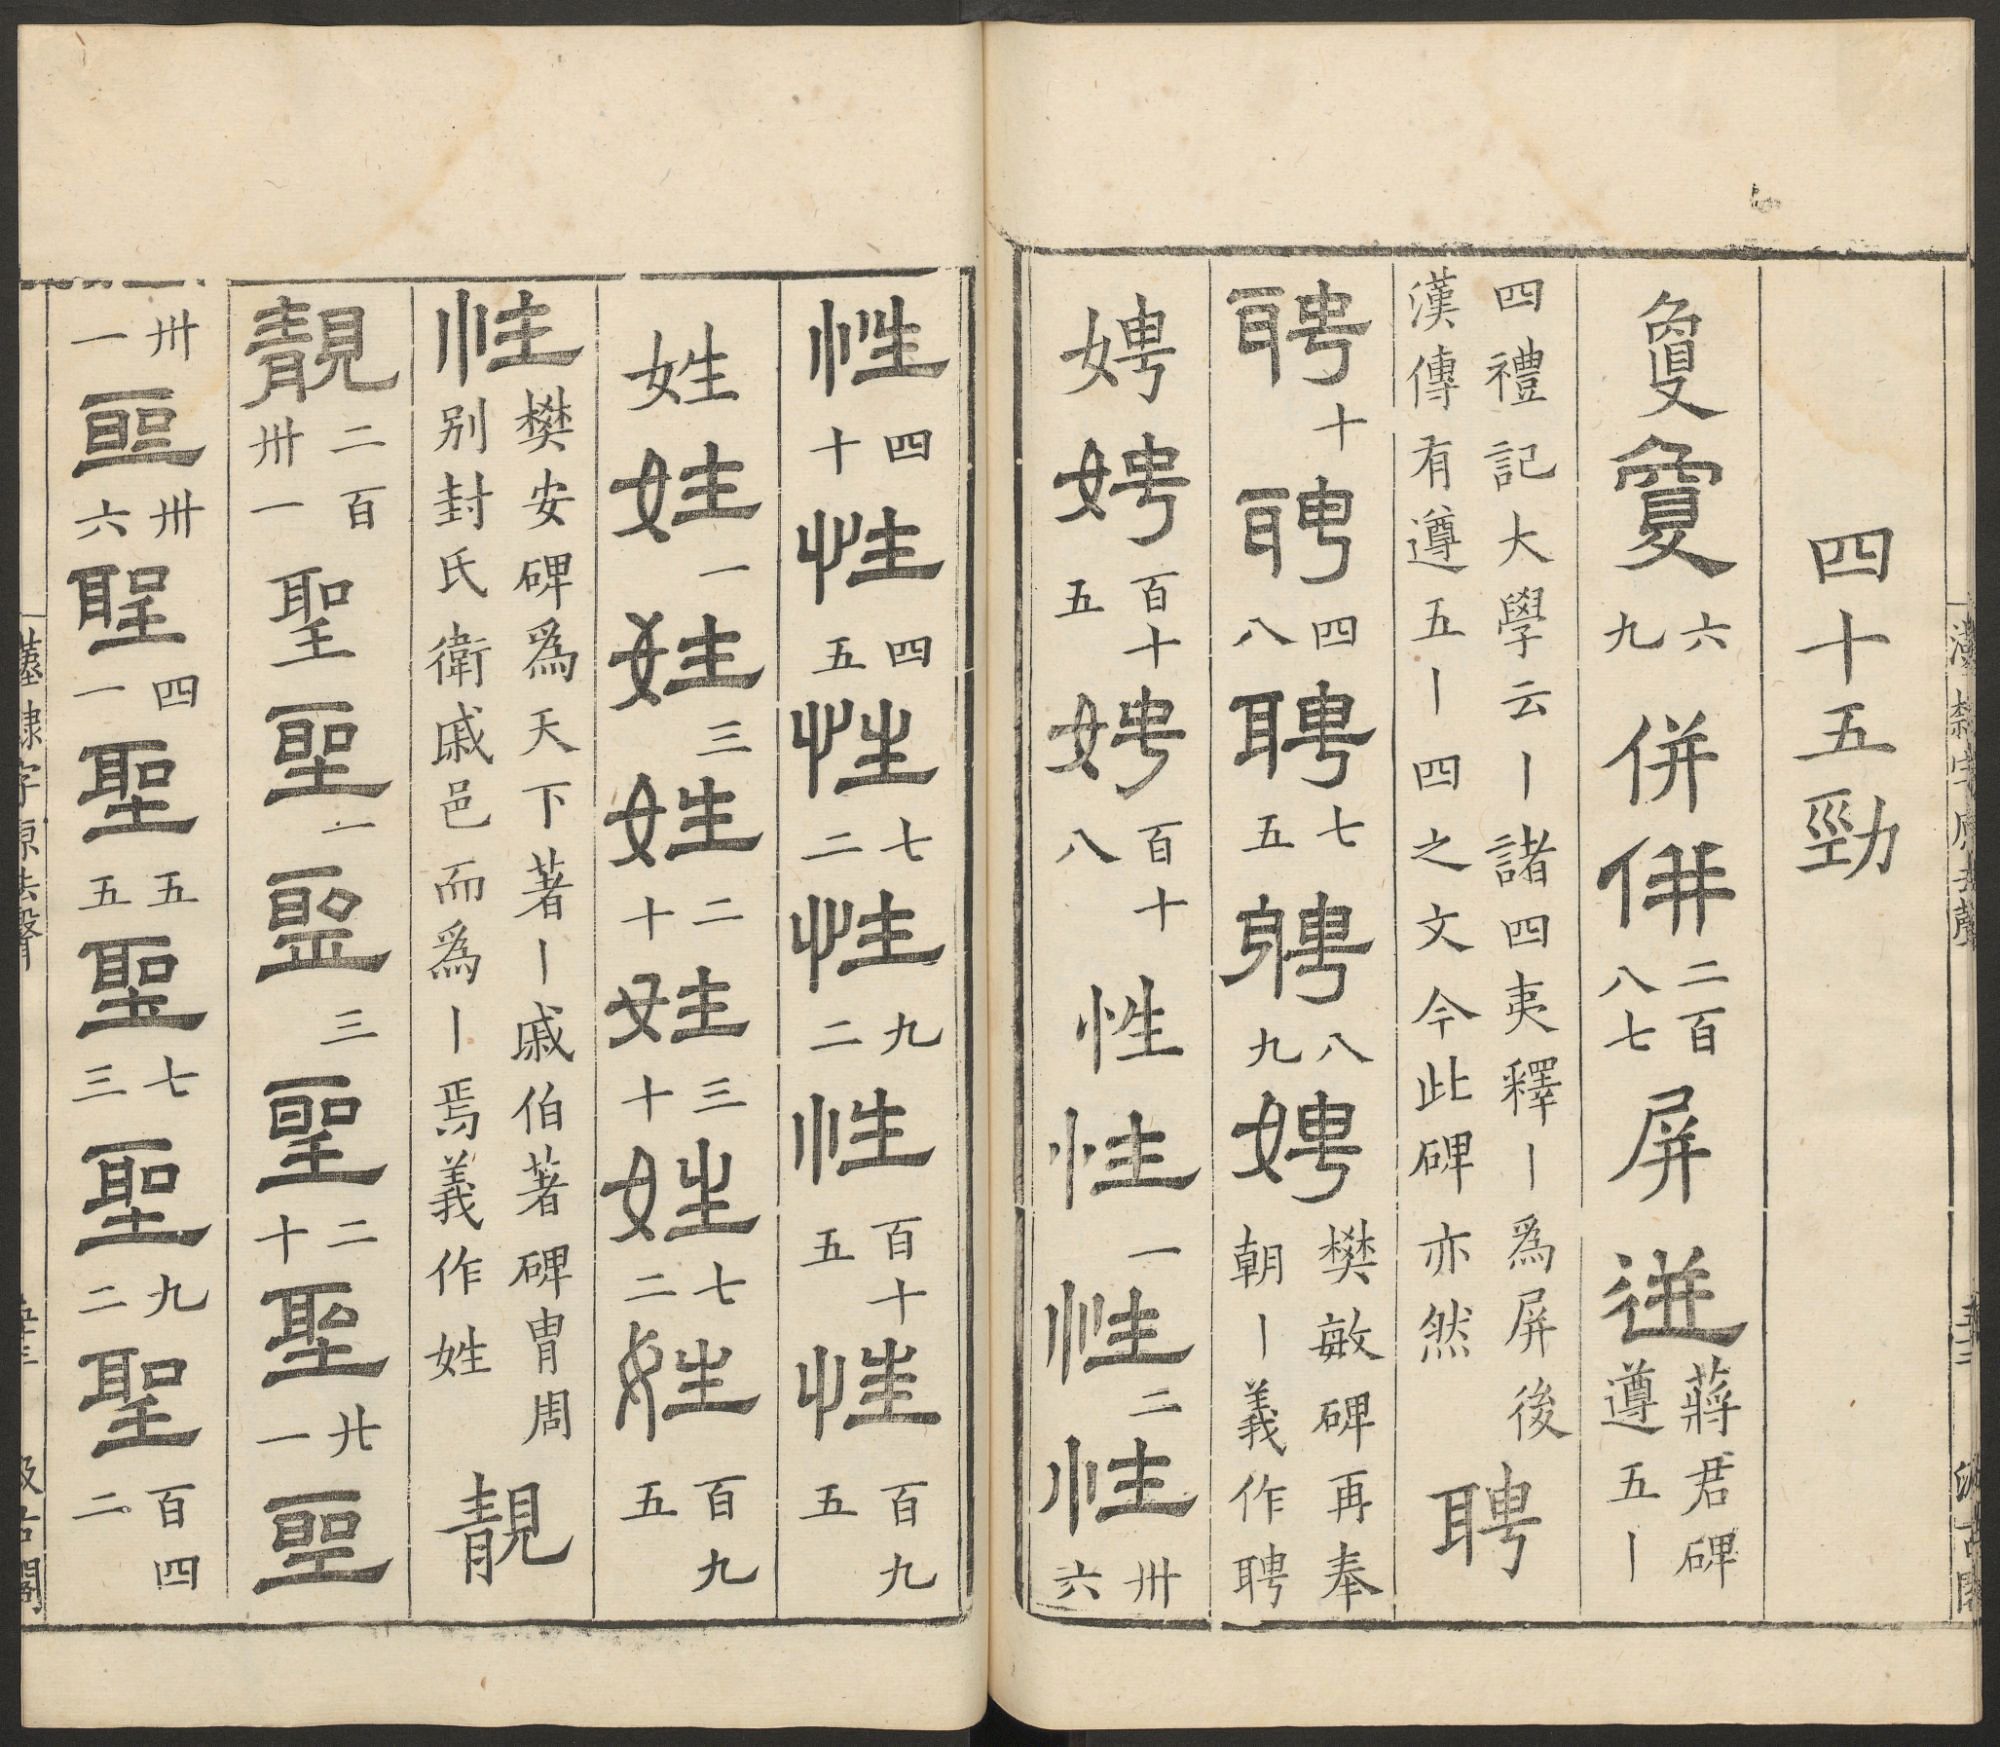 漢隸字原去聲 五十二 汲古閣
四十五勁
敻敻六九併併二百八七屏迸蔣君碑遵五丨
四禮記大學云丨諸四夷釋丨爲屏後漢傳有遵五丨四之文今此碑亦然聘
聘十聘四八聘七五聘八九娉樊敏碑再奉朝丨義作聘
娉娉百十五娉百十八性性一性二性卅六
性四十性四五性七二性九二性百十五性百九五
姓姓一姓三姓二十姓三十姓七二姓百九五
性樊安碑爲天下著丨戚伯著碑胄周别封氏衛戚邑而爲丨焉義作姓靚
靚二百卅一聖聖一聖三聖二十聖廿一聖
卅一聖卅六聖四一聖五五聖七三聖九二聖百四二
漢隸字原去聲 五十三 汲古閣